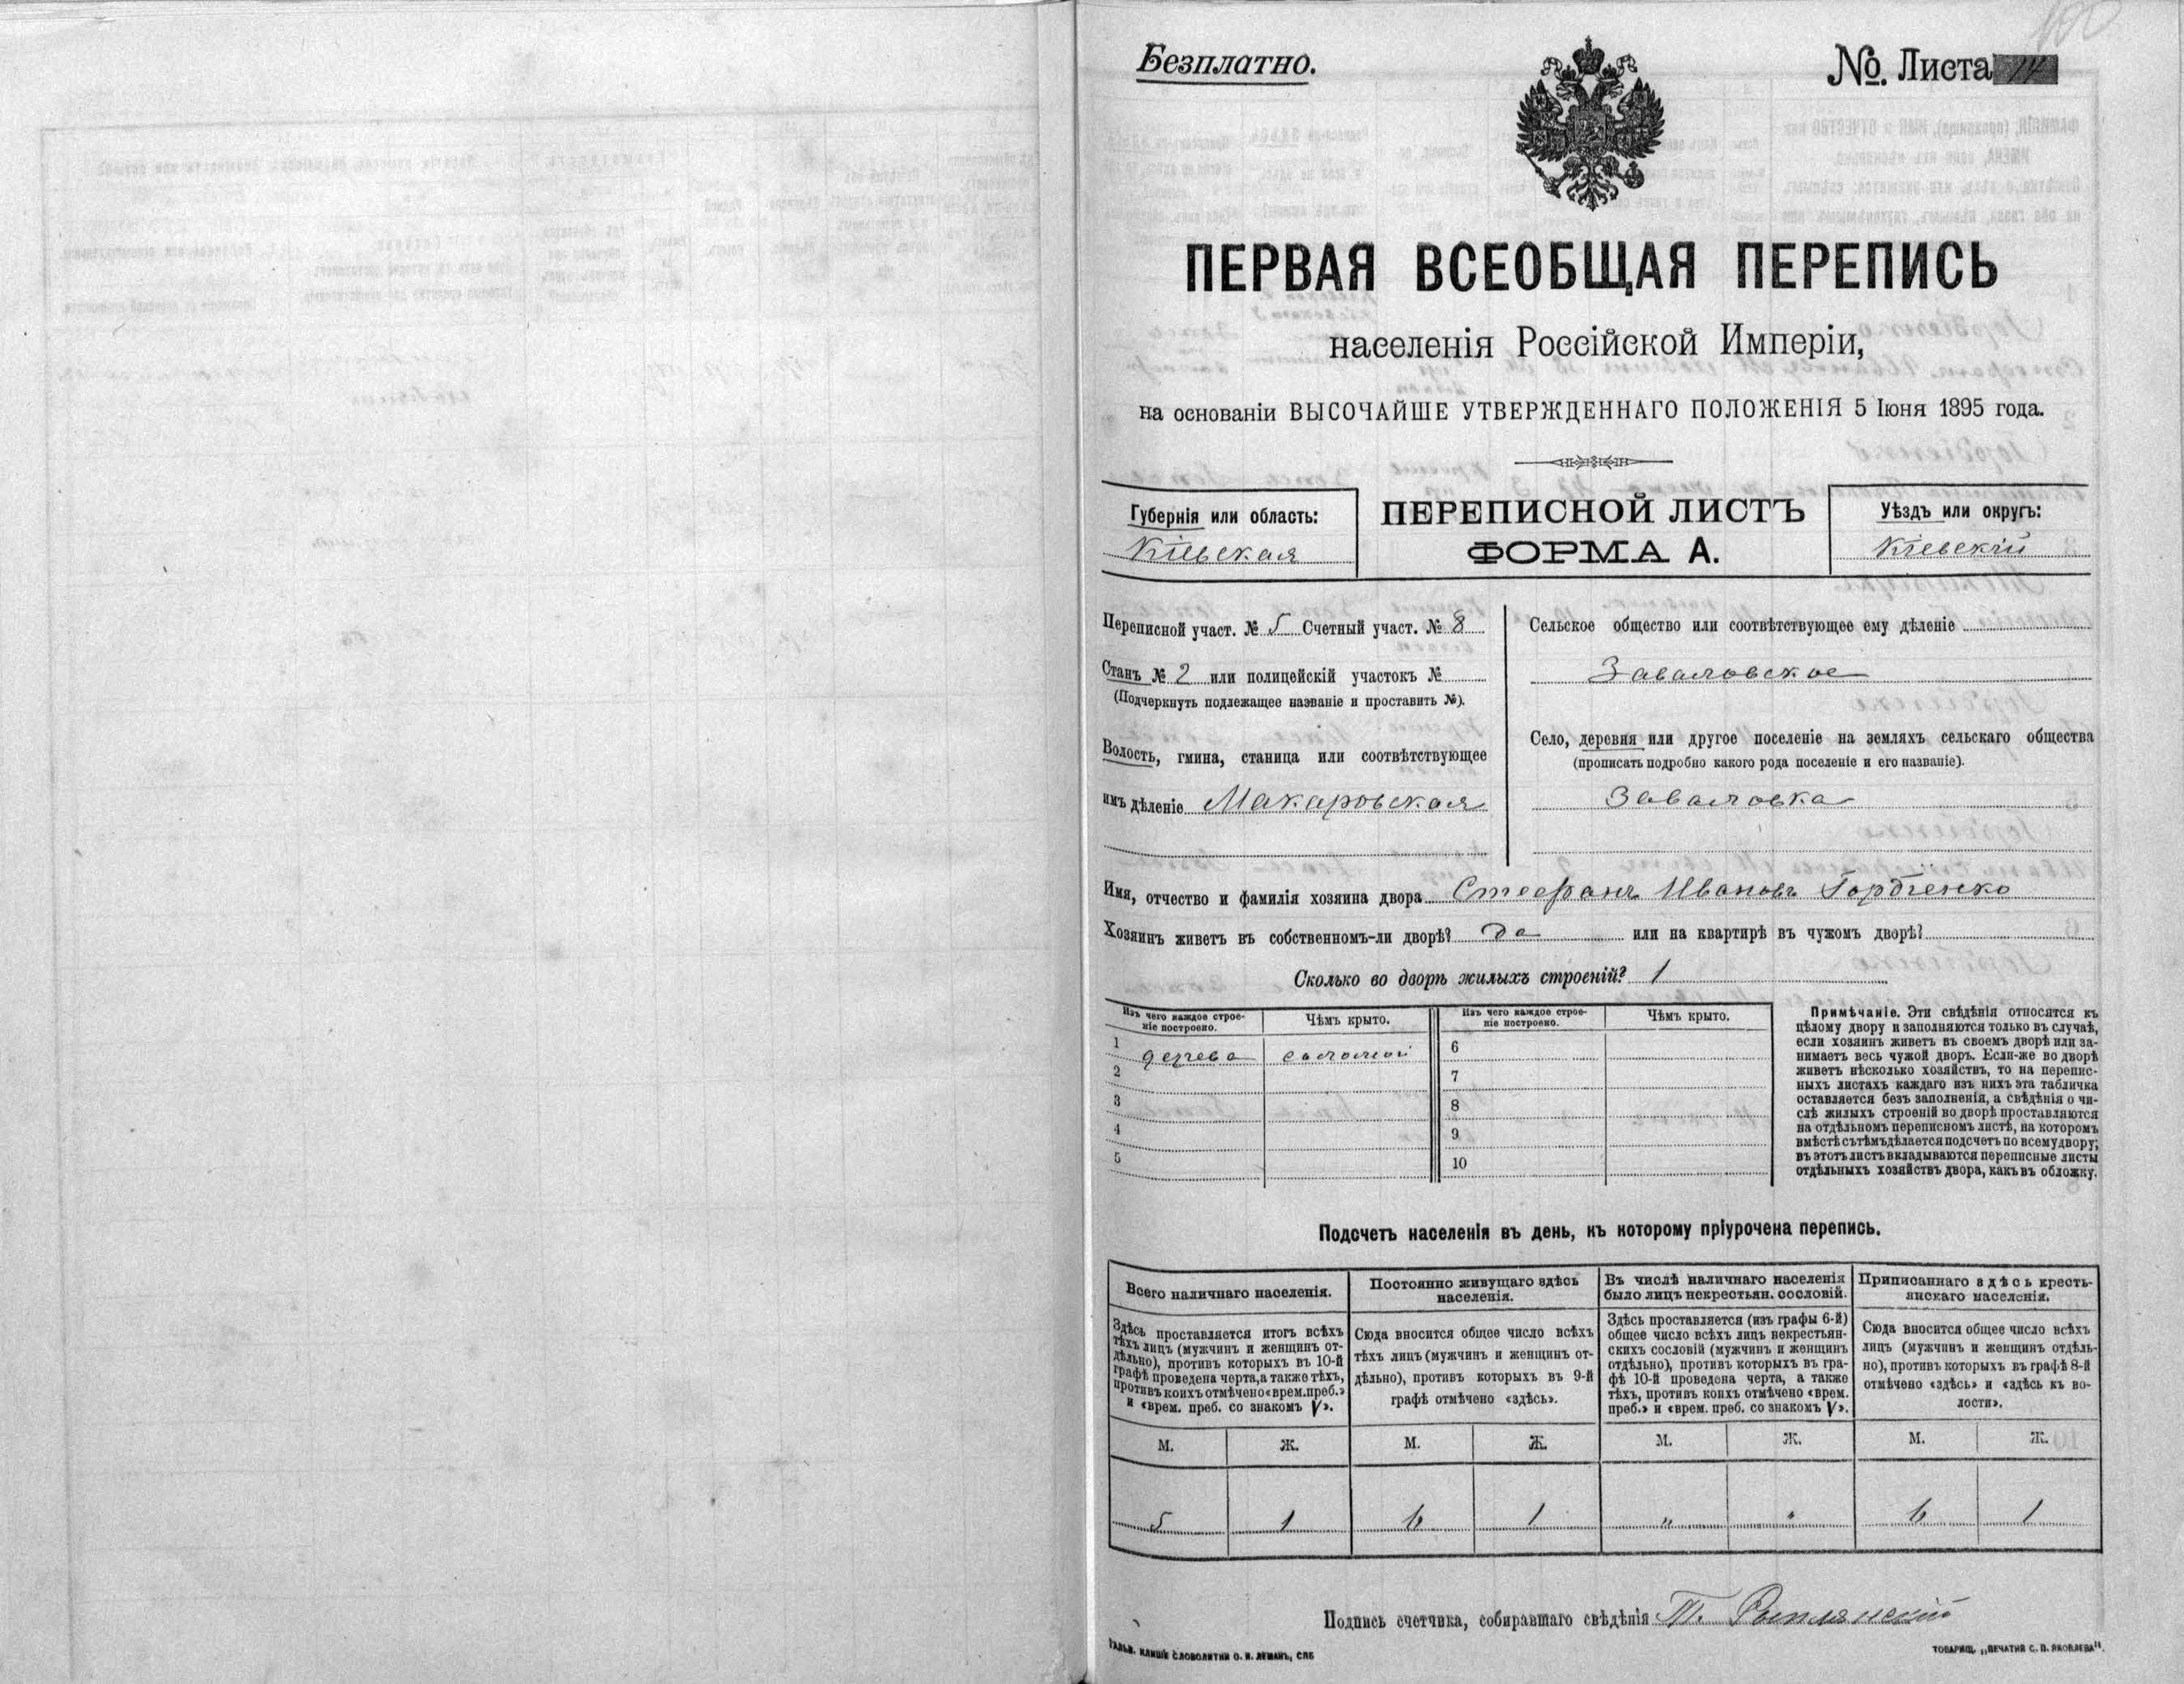 100
Безплатно.
№. Листа 14
ПЕРВАЯ ВСЕОБЩАЯ ПЕРЕПИСЬ
населенія Россійской Имперіи,
на основаніи ВЫСОЧАЙШЕ УТВЕРЖДЕННАГО ПОЛОЖЕНІЯ 5 Іюня 1895 года.
Губернія или область:
Кіевская
ПЕРЕПИСНОЙ ЛИСТЪ
ФОРМА А.
Уѣздъ или округъ:
Кіевскій
Переписной участ. № 5 Счетный участ. № 8
Станъ № 2 или полицейскій участокъ №
(Подчеркнуть подлежащее названіе и проставить №).
Волость, гмина, станица или соотвѣтствующее
имъ дѣленіе Макаровская
Сельское общество или соотвѣтствующее ему дѣленіе
Заваловское
Село, деревня или другое поселеніе на земляхъ сельскаго общества
(прописать подробно какого рода поселеніе и его названіе).
Заваловка
Имя, отчество и фамилія хозяина двора Стефанъ Ивановъ Гордіенко
Хозяинъ живетъ въ собственномъ-ли дворѣ? да или на квартирѣ въ чужомъ дворѣ?
Сколько во дворѣ жилыхъ строеній? 1
Изъ чего каждое строе-
ніе построено.
Чѣмъ крыто.
Изъ чего каждое строе-
ніе построено.
Чѣмъ крыто.
1 дерева соломой
2
3
4
5
6
7
8
9
10
Примѣчаніе. Эти свѣдѣнія относятся къ
цѣлому двору и заполняются только въ случаѣ,
если хозяинъ живетъ въ своемъ дворѣ или за-
нимаетъ весь чужой дворъ. Если-же во дворѣ
живетъ нѣсколько хозяйствъ, то на перепис-
ныхъ листахъ каждаго изъ нихъ эта табличка
оставляется безъ заполненія, а свѣдѣнія о чи-
слѣ жилыхъ строеній во дворѣ проставляются
на отдѣльномъ переписномъ листѣ, на которомъ
вмѣстѣ съ тѣмъ дѣлается подсчетъ по всему двору;
въ этотъ листъ вкладываются переписные листы
отдѣльныхъ хозяйствъ двора, какъ въ обложку.
Подсчетъ населенія въ день, къ которому пріурочена перепись.
Всего наличнаго населенія.
Здѣсь проставляется итогъ всѣхъ
тѣхъ лицъ (мужчинъ и женщинъ от-
дѣльно), противъ которыхъ въ 10-й
графѣ проведена черта, а также тѣхъ,
противъ коихъ отмѣчено «врем. преб.»
и «врем. преб. со знакомъ V».
Постоянно живущаго здѣсь
населенія.
Сюда вносится общее число всѣхъ
тѣхъ лицъ (мужчинъ и женщинъ от-
дѣльно), противъ которыхъ въ 9-й
графѣ отмѣчено «здѣсь».
Въ числѣ наличнаго населенія
было лицъ некрестьян. сословій.
Здѣсь проставляется (изъ графы 6-й)
общее число всѣхъ лицъ некрестьян-
скихъ сословій (мужчинъ и женщинъ
отдѣльно), противъ которыхъ въ гра-
фѣ 10-й проведена черта, а также
тѣхъ, противъ коихъ отмѣчено «врем.
преб.» и «врем. преб. со знакомъ V».
Приписаннаго здѣсь кресть-
янскаго населенія.
Сюда вносится общее число всѣхъ
лицъ (мужчинъ и женщинъ отдѣль-
но), противъ которыхъ въ графѣ 8-й
отмѣчено «здѣсь» и «здѣсь къ во-
лости».
М. Ж. М. Ж. М. Ж. М. Ж.
5 1 6 1 " " 6 1
Подпись счетчика, собиравшаго свѣдѣнія
Гальв. клише словолитни О. И. Леманъ, СПБ
ТОВАРИЩ. „ПЕЧАТНЯ С. П. ЯКОВЛЕВА".